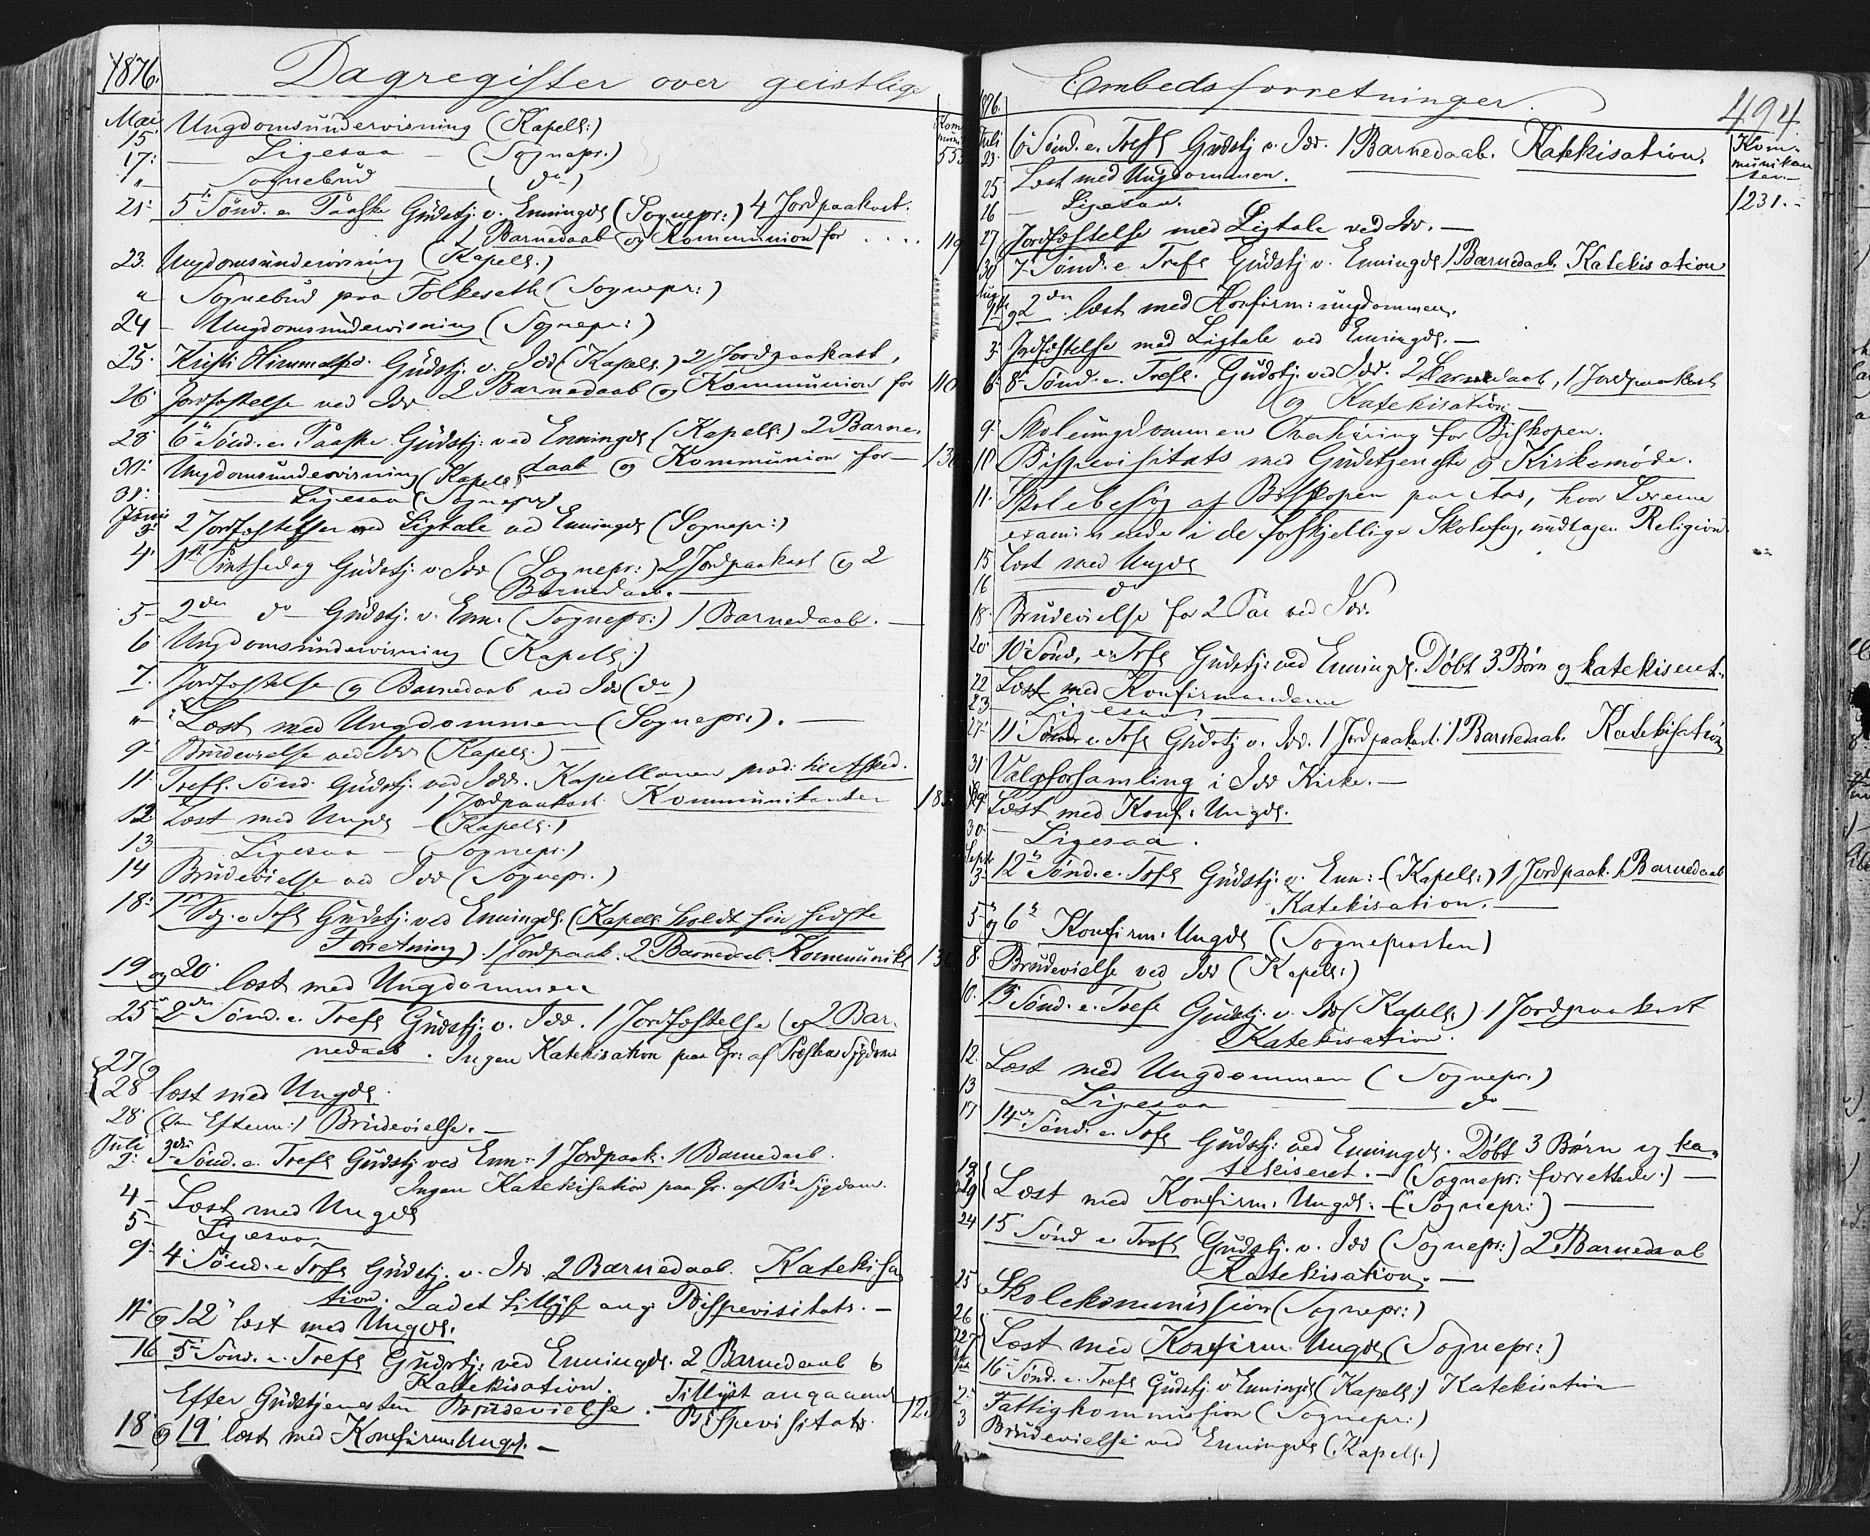 1876. Dagregister over geistlige
Mai 15 Ungdomsundervisning (Kapell:)
17: — Ligesaa — (Sognepr:)
" — Sognebud — (do)
21: 5te Sønd. e. Paaske Gudstj. v. Enningd. (Sognepr:) 4 Jordpaakast.
1 Barnedaab og Kommunion for . . . .
23. Ungdomsundervisning (Kapell.)
" Sognebud paa Folkeseth (Sognepr:)
24 — Ungdomsundervisning (Sognepr:)
25. Kristi Himmelfd. Gudstj. v. Idd (Kapell.) 2 Jordpaakast,
2 Barnedaab og Kommunion for 110
26 Jordfæstelse ved Idd.
28 6te Sønd. e. Paaske. Gudstj: ved Enningd. (Kapell:) 2 Barne-
daab og Kommunion for — 130
30: Ungdomsundervisning (Kapell.)
31: — Ligesaa (Sognepr.)
Juni 3: 2 Jordfæstelser med Ligtale ved Enningd. (Sognepr:)
4: 1ste Pintsedag Gudstj. v. Idd (Sognepr:) 2 Jordpaakast og 2
Barnedaab. —
5 — 2den do — Gudstj. v. Enn. (Sognepr:) 1 Barnedaab. —
6 Ungdomsundervisning (Kapell:)
7. Jordfæstelse og Barnedaab ved Idd (do)
" — Læst med Ungdommen (Sognepr:). —
9 — Brudevielse ved Idd (Kapell.) —
11: Trefs. Sønd. Gudstj. ved Idd. Kapellanen præd: til Afsked.
1 Jordpaakast. Kommunikanter
12 Læst med Ungd. — (Kapell.)
13 — Ligesaa — (Sognepr.)
14 Brudevielse ved Idd (Sognepr.)
18: 1ste Søg. e. Trefs Gudstj: ved Enningd. (Kapell. holdt sin sidste
Forretning) 1 Jordpaak. 2 Barnedaab. Kommunikt
19 og 20 læst med Ungdommen
25 2den Sønd. e. Trefs Gudstj. v. Idd. 1 Jordfæstelse og 2 Bar-
nedaab. Ingen Katekisation paa Gr: af Præstens Sygdom
27 og
28 læst med Ungd.
28 (om Efterm:) Brudevielse. —
Juli 2: 3die Sønd. e. Trefs Gudstj ved Enn: 1 Jordpaak. 1 Barnedaab.
Ingen Katekisation paa Gr. af Prs Sygdom.
4 — Læst med Ungd.
5 — Ligesaa
9 — 4 Sønd. e Trefs Gudstj. v. Idd 2 Barnedaab. Katekisa
tion. Ladet tillyse ang. Bispevisitats. —
11 og 12 læst med Ungd.
16 5 Sønd. e. Trefs Gudstj: ved Enningd. 2 Barnedaab &
Katekisation.
Efter Gudstjenesten Brudevielse. Tillyst angaaend
Bispevisitats.
18 og 19 læst med Konfirm. Ungd. —
1876. Embedsforretninger. 494.
Juli 23. 6te Sønd. e. Trefs Gudstj v. Idd. 1 Barnedaab. Katekisation. Kom-
munikan
ter.
25 Læst med Ungdommen. 1231. —
26 — Ligesaa.
27 Jordfæstelse med Ligtale ved Idd. —
30 7 Sønd. e Trefs Gudstj v. Enningd. 1 Barnedaab. Katekisation
Aug. 1 og 2den læst med Konfirm: ungdommen.
3. Jordfæstelse med Ligtale ved Enningd. —
6. 8 Sønd. e. Trefs. Gudstj. ved Idd. 2 Barnedaab, 1 Jordpaakast
og Katekisation —
9. Skoleungdommen Overhøring for Biskopen.
10 Bispevisitats med Gudstjeneste og Kirkemøde.
11. Skolebesøg af Biskopen paa Aas, hvor Lærerne
examinerede i de forskjellige Skolefag, undtagen Religion.
15 læst med Ungd.
16 — do
18 Brudevielse for 2 Par ved Idd.
20 10 Sønd. e. Trefs Gudstj: ved Enningd. Døbt 3 Børn og katekiseret.
22 Læst med Konfirmanderne
23 — Ligesaa
27 11 Sønd e. Trefs Gudstj v. Idd. 1 Jordpaakast. 1 Barnedaab. Katekisation
31 Valgforsamling i Idd Kirke. —
29 Læst med Konf: Ungd.
30 — Ligesaa.
Sept. 3: 12te Sønd. e. Trefs Gudstj. v. Enn: (Kapell:) 1 Jordpaak. 1 Barnedaab
Katekisation. —
5 og 6te Konfirm: Ungd. (Sognepræsten)
8 Brudevielse ved Idd (Kapell:)
10. 13 Sønd. e. Trefs Gudstj. v. Idd (Kapell.) 1 Jordpaakast
Katekisation.
12. Læst med Ungdommen (Sognepr:)
13 — Ligesaa — do —
17 14de Sønd. e. Trefs Gudstj: ved Enningd. Døbt 3 Børn og ka-
tekiseret. — (Sognepr: forrettede.) —
19 & 20 Læst med Konfirm: Ungd. — (Sognepr:) —
24 15 Sønd e Trefs Gudstj. v. Idd (Sognepr:) 2 Barnedaab
Katekisation. —
25 Skolekommission (Sognepr:)
26
27 Læst med Konfirm Ungd. (Sognepr:)
16 Sønd. e. Trefs Gudstj v Enningd. (Kapell:) Katekisation
2 Fattigkommission (Sognepr:)
3 Brudevielse ved Enningd. (Kapell.)